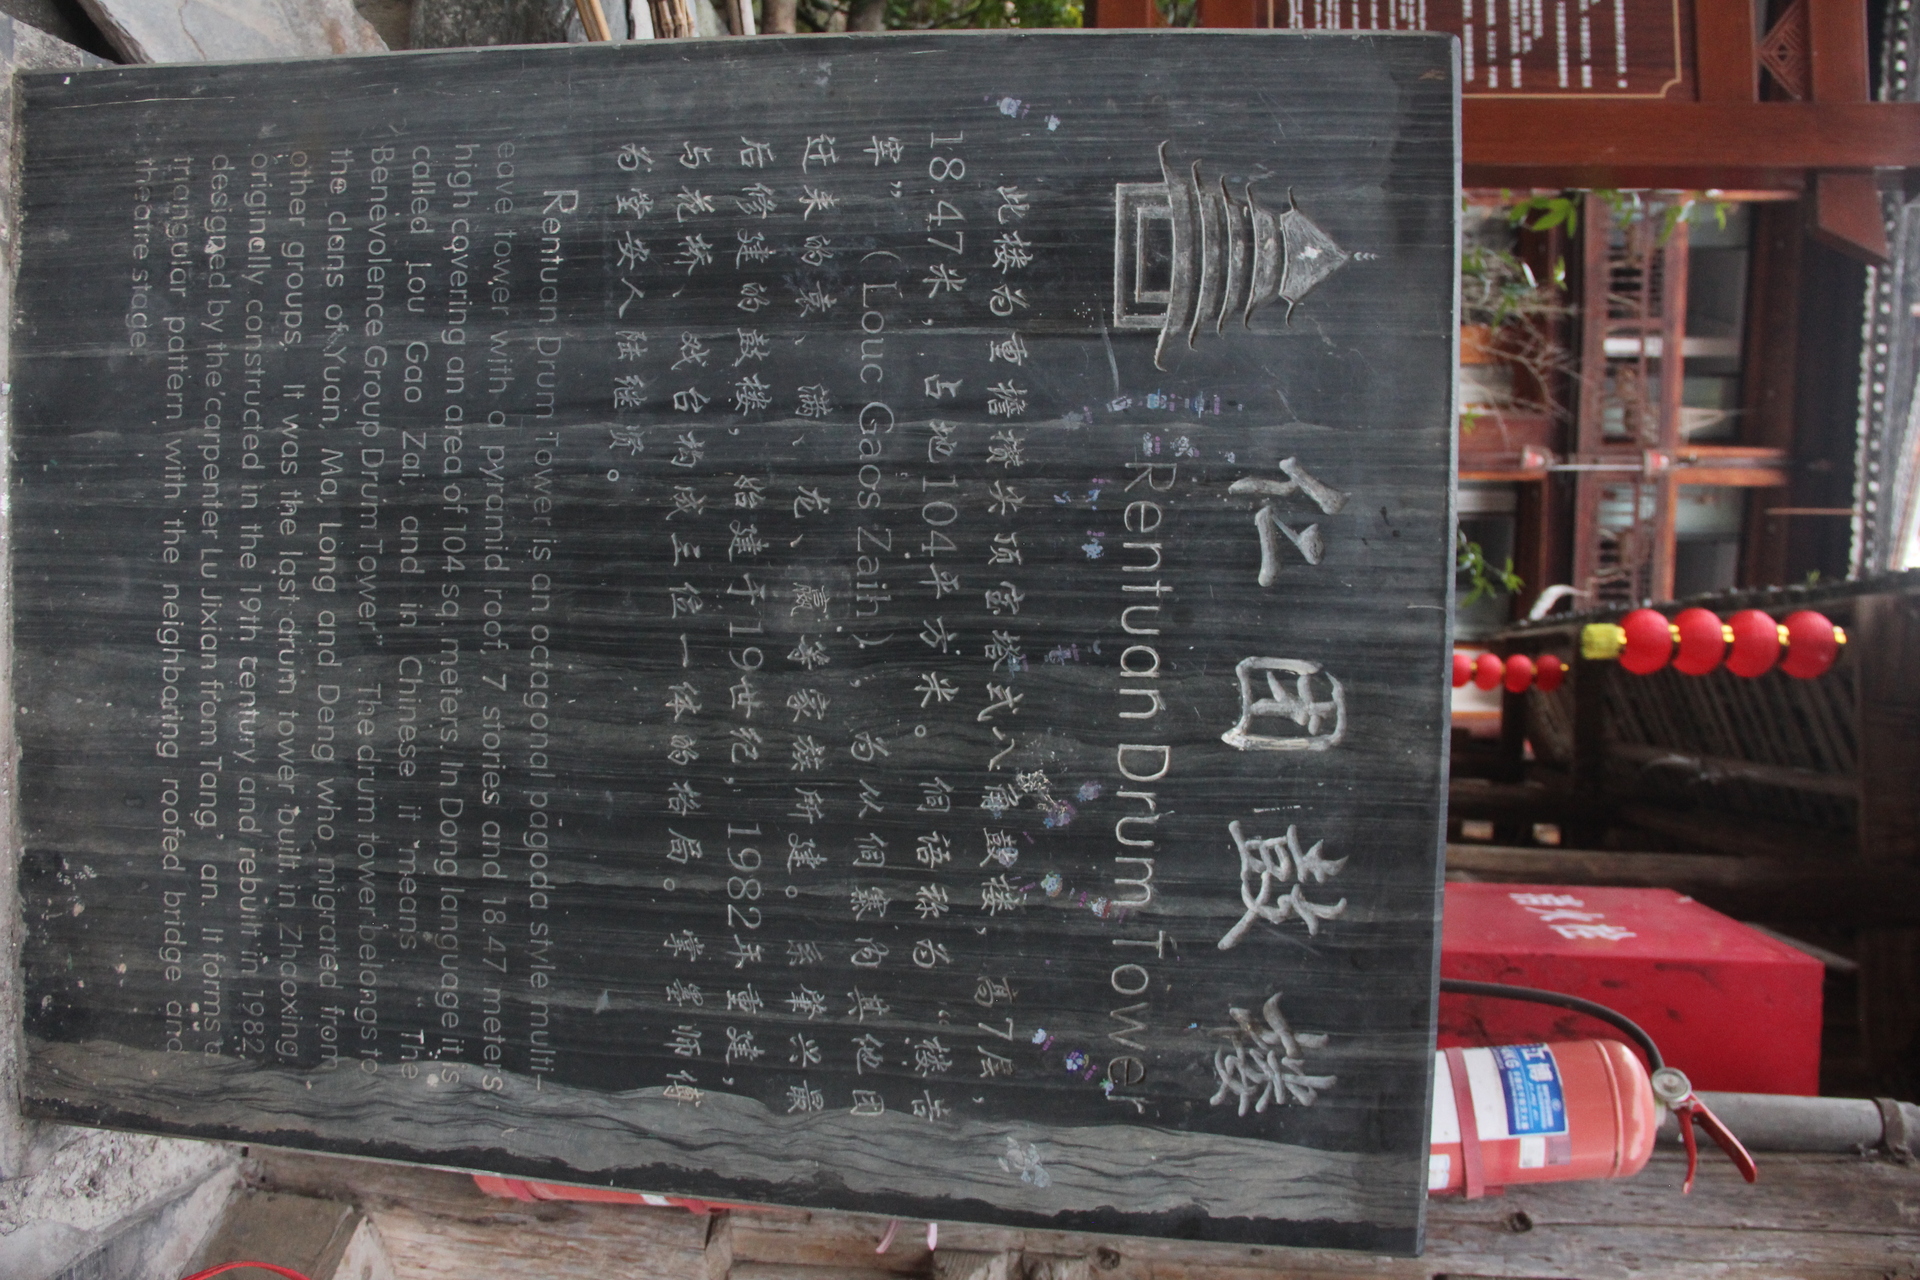 仁团鼓楼
Rentuan Drum Tower
此楼为重檐攒尖顶密塔式八角鼓楼，高7层，
18.47米，占地104平方米。侗语称为“楼告
宰”（Louc Gaos Zaih），为从侗寨的其他团
迁来的袁、满、龙、赢等家族所建。系肇兴最
后修建的鼓楼，始建于19世纪，1982年重建，
与花桥、戏台构成三位一体的格局。掌墨师傅
为堂安人陆继贤。
Rentuan Drum Tower is an octagonal pagoda style multi-
eave tower with a pyramid roof, 7 stories and 18.47 meters
high covering an area of 104 sq. meters. In Dong language it is
called Lou Gao Zai, and in Chinese it means “The
Benevolence Group Drum Tower” The drum tower belongs to
the clans of Yuan, Ma, Long and Deng who migrated from
other groups. It was the last drum tower built in Zhaoxing,
originally constructed in the 19th century and rebuilt in 1982,
designed by the carpenter Lu Jixian from Tang' an. It forms a
triangular pattern with the neighboring roofed bridge and
theatre stage.
消火栓